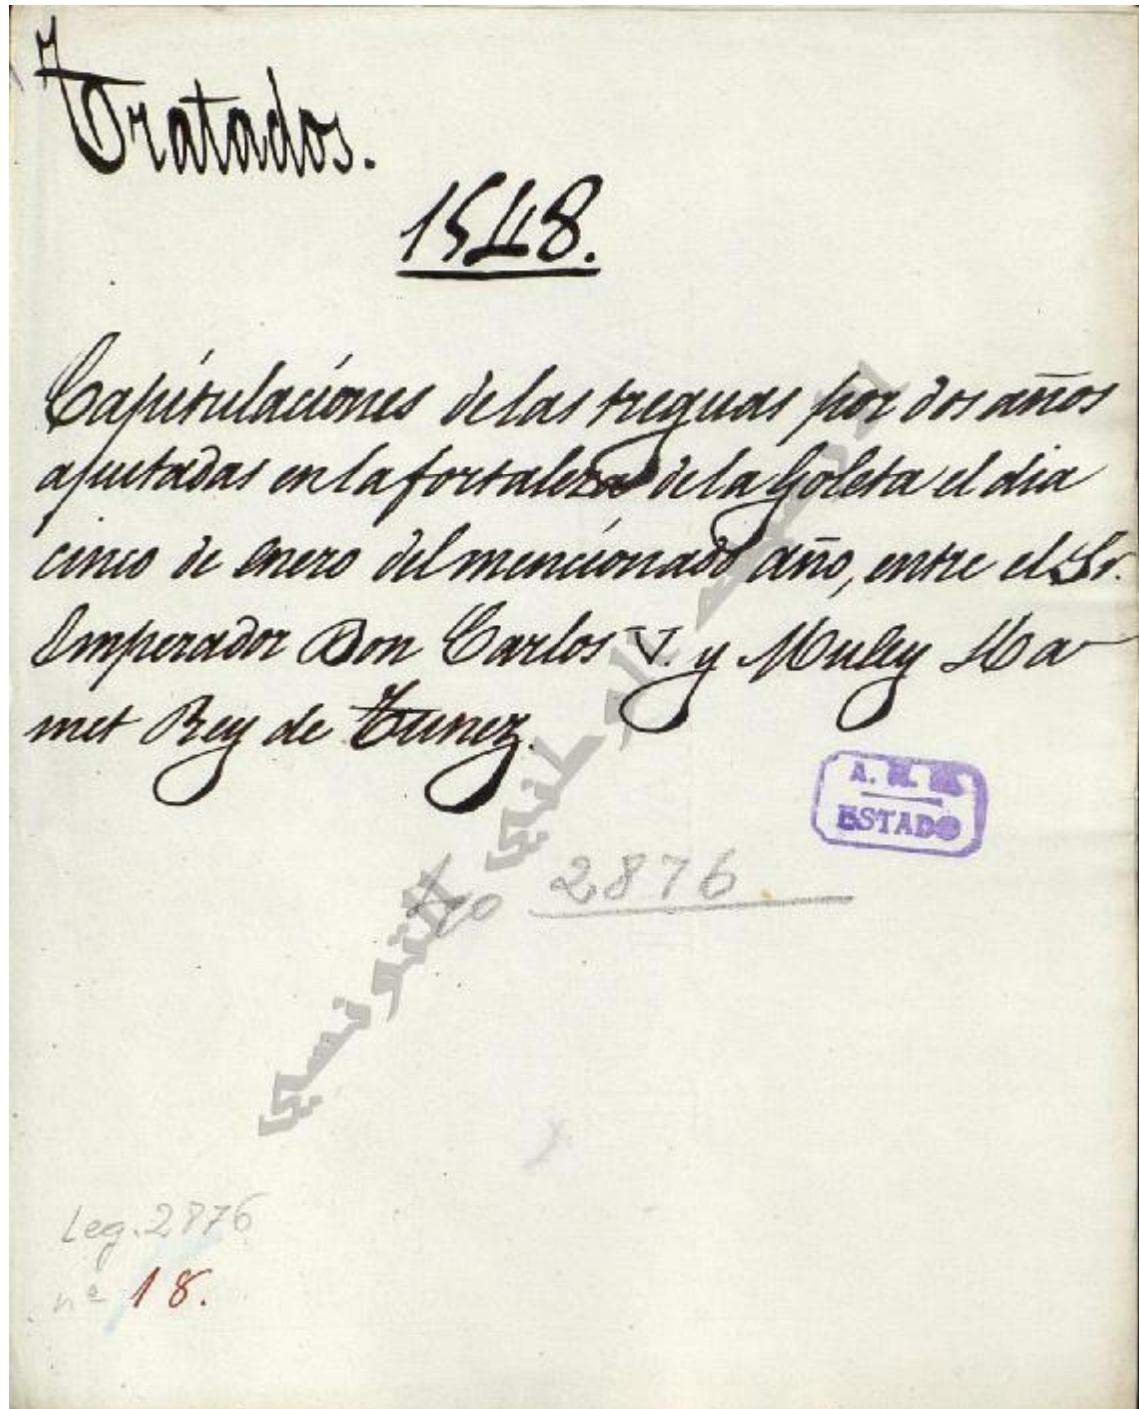 Tratados.
1548.
Capitulaciones de las treguas por dos años
ajustadas en la fortaleza de la Goleta el dia
cinco de enero del mencionado año, entre el Sr.
Emperador Don Carlos V. y Muley Ha-
met Rey de Tunez.
A. H. N.
ESTADO
Leg 2876
التونسي
Leg. 2876
nº 18.